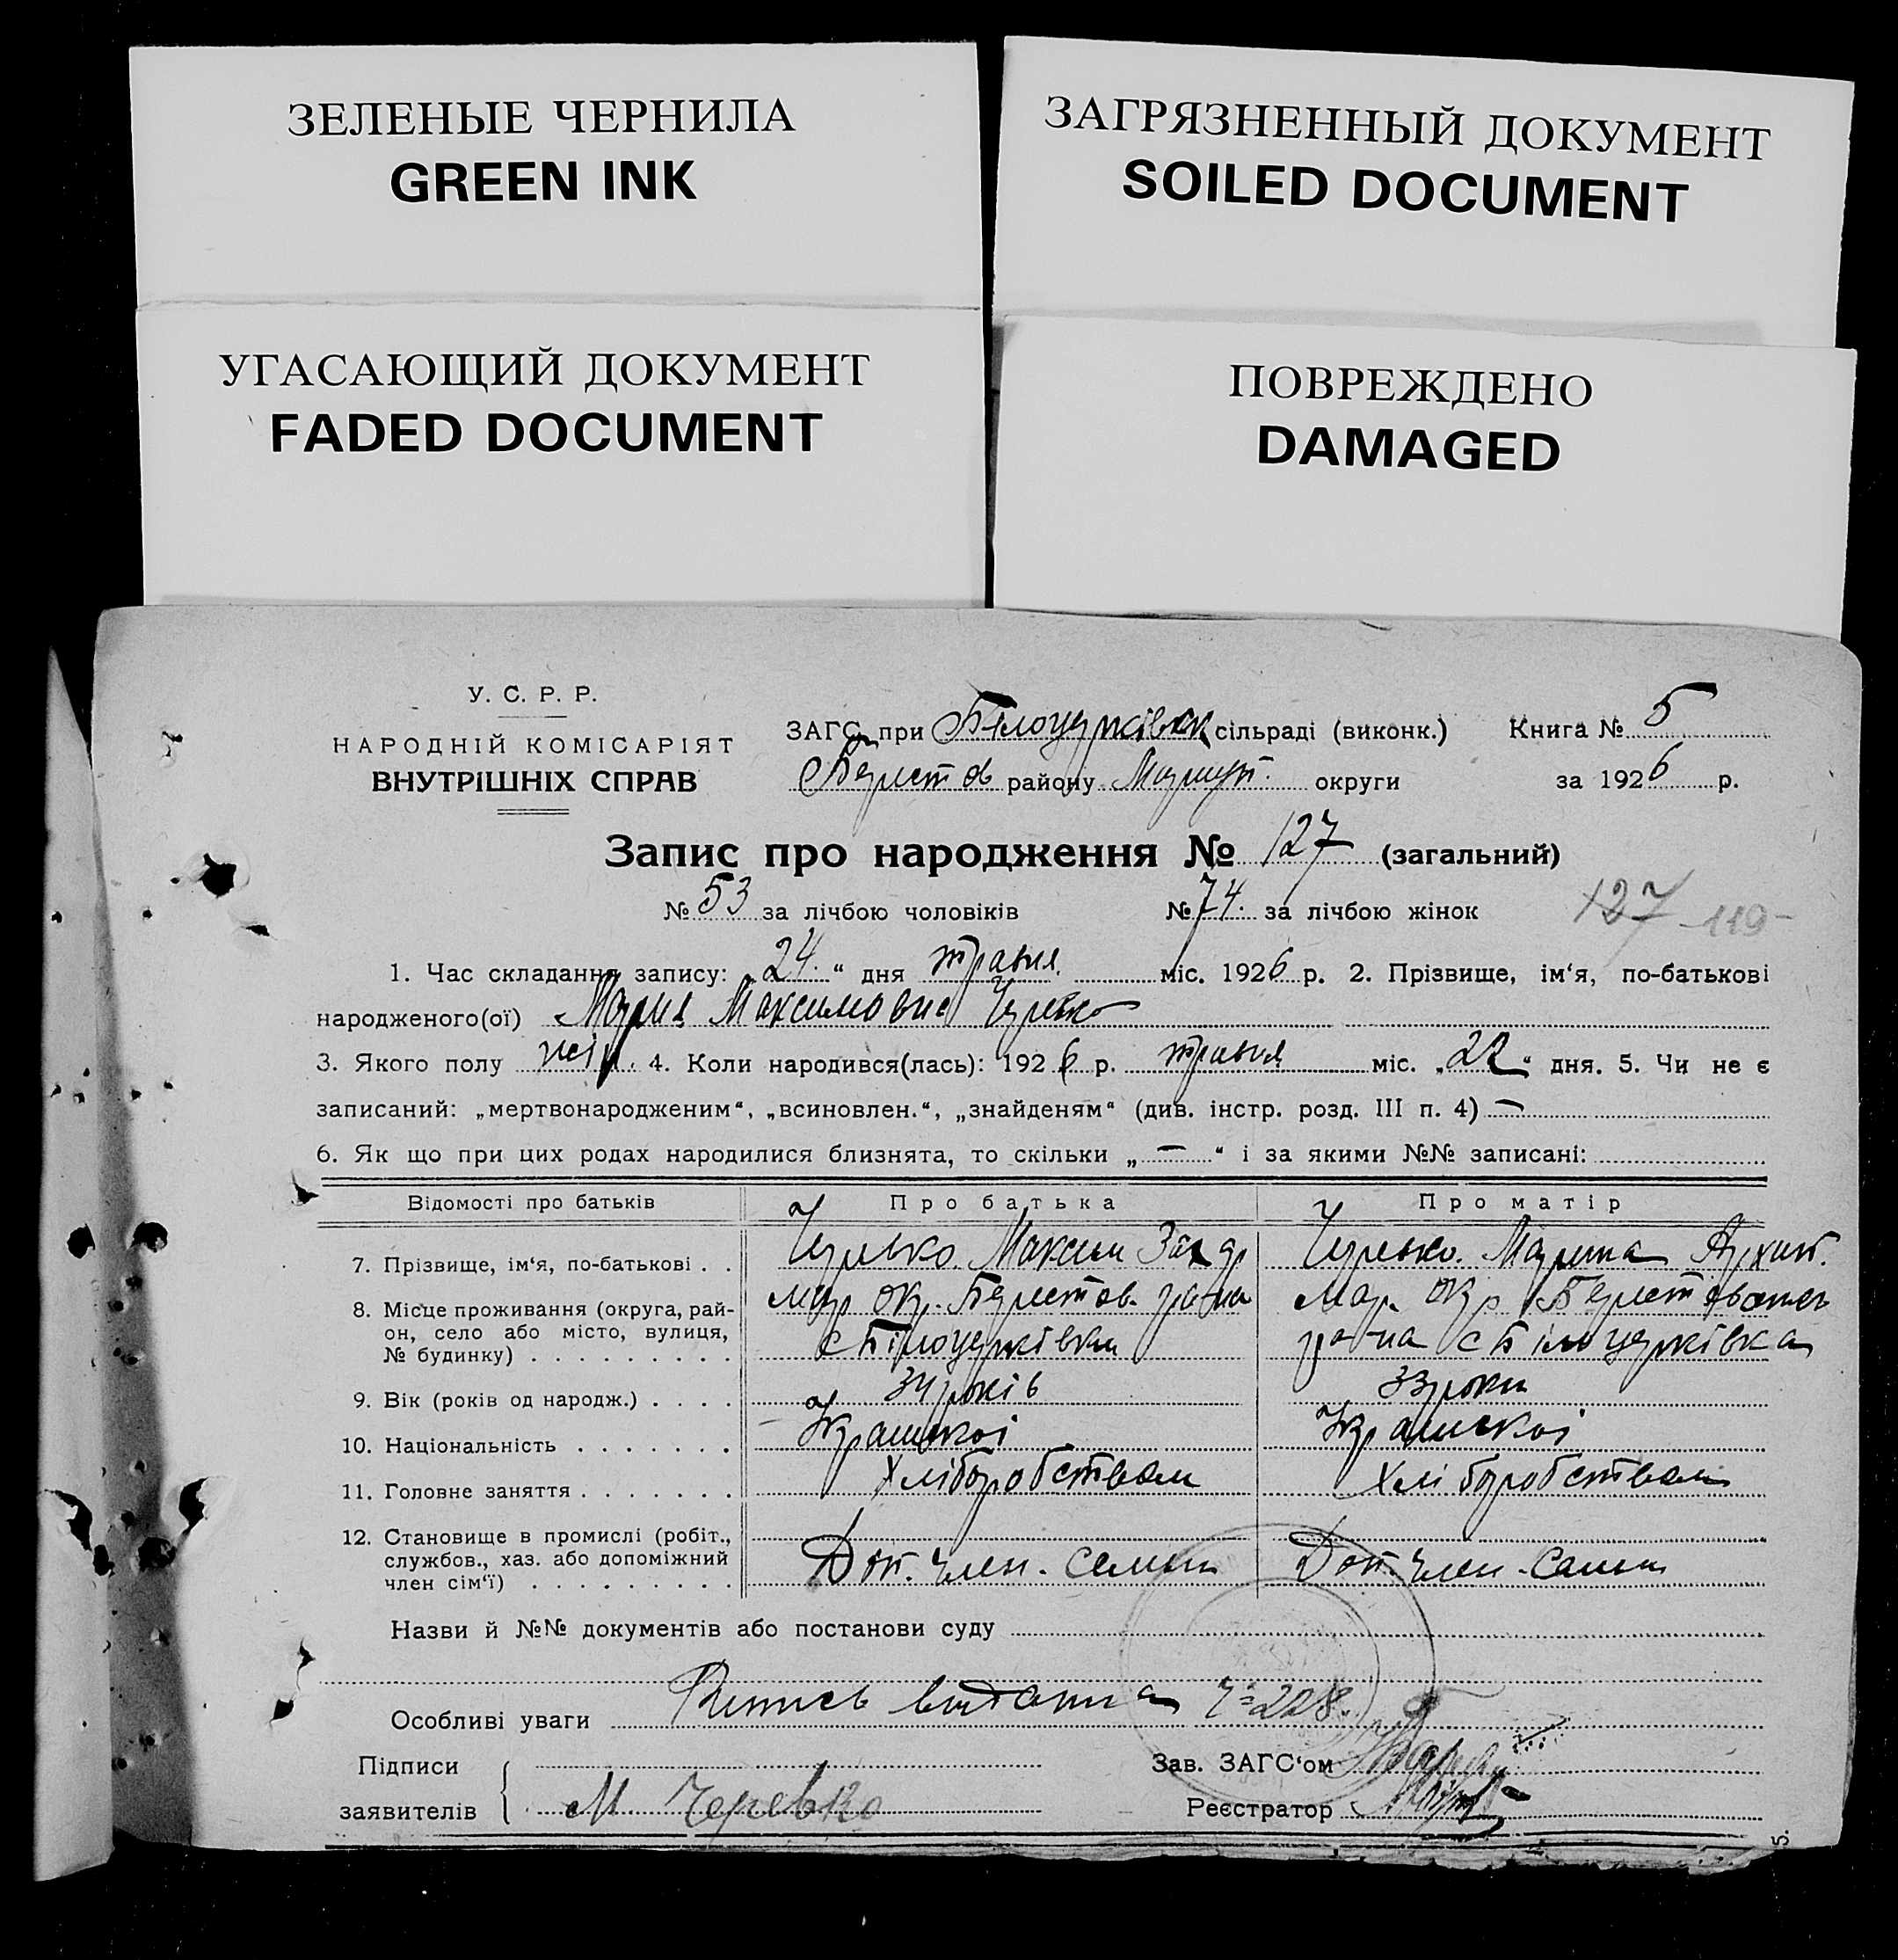 ЗЕЛЕНЫЕ ЧЕРНИЛА
GREEN INK
ЗАГРЯЗНЕННЫЙ ДОКУМЕНТ
SOILED DOCUMENT
УГАСАЮЩИЙ ДОКУМЕНТ
FADED DOCUMENT
ПОВРЕЖДЕНО
DAMAGED
У. С. Р. Р.
НАРОДНІЙ КОМІСАРІЯТ
ВНУТРІШНІХ СПРАВ
ЗАГС при Білоцерківск сільраді (виконк.) Книга № 5
Берестов району Маріуп. округи за 1926 р.
Запис про народження № 127 (загальний)
№ 53 за лічбою чоловіків № 74. за лічбою жінок 127 119
1. Час складання запису: „24.“ дня травня міс. 1926 р. 2. Прізвище, ім‘я, по-батькові
народженого(ої) Мария Максимовна Черевко
3. Якого полу жін. 4. Коли народився(лась): 1926 р. травня міс. „22“ дня. 5. Чи не є
записаний: „мертвонародженим“, „всиновлен.“, „знайденям“ (див. інстр. розд. III п. 4) —
6. Як що при цих родах народилися близнята, то скільки „—“ і за якими №№ записані:
Відомості про батьків Про батька Про матір
7. Прізвище, ім‘я, по-батькові . . Черевко. Максим Черевко. Марина Архип.
8. Місце проживання (округа, рай-
он, село або місто, вулиця,
№ будинку)
мар окр. Берестов. района
с Білоцерківки
мар. окр Берестов
района с Білоцерківка
9. Вік (років од народж.) 34 років 33 роки
10. Національність Украінскоі Украінскоі
11. Головне заняття Хліборобством Хліборобством
12. Становище в промислі (робіт.,
службов., хаз. або допоміжний
член сім‘ї)
Доп. член. семьи Доп. член. семьи
Назви й №№ документів або постанови суду
Особливі уваги выдана № 228.
Підписи
заявителів М Черевко
Зав. ЗАГС‘ом
Реєстратор
5.